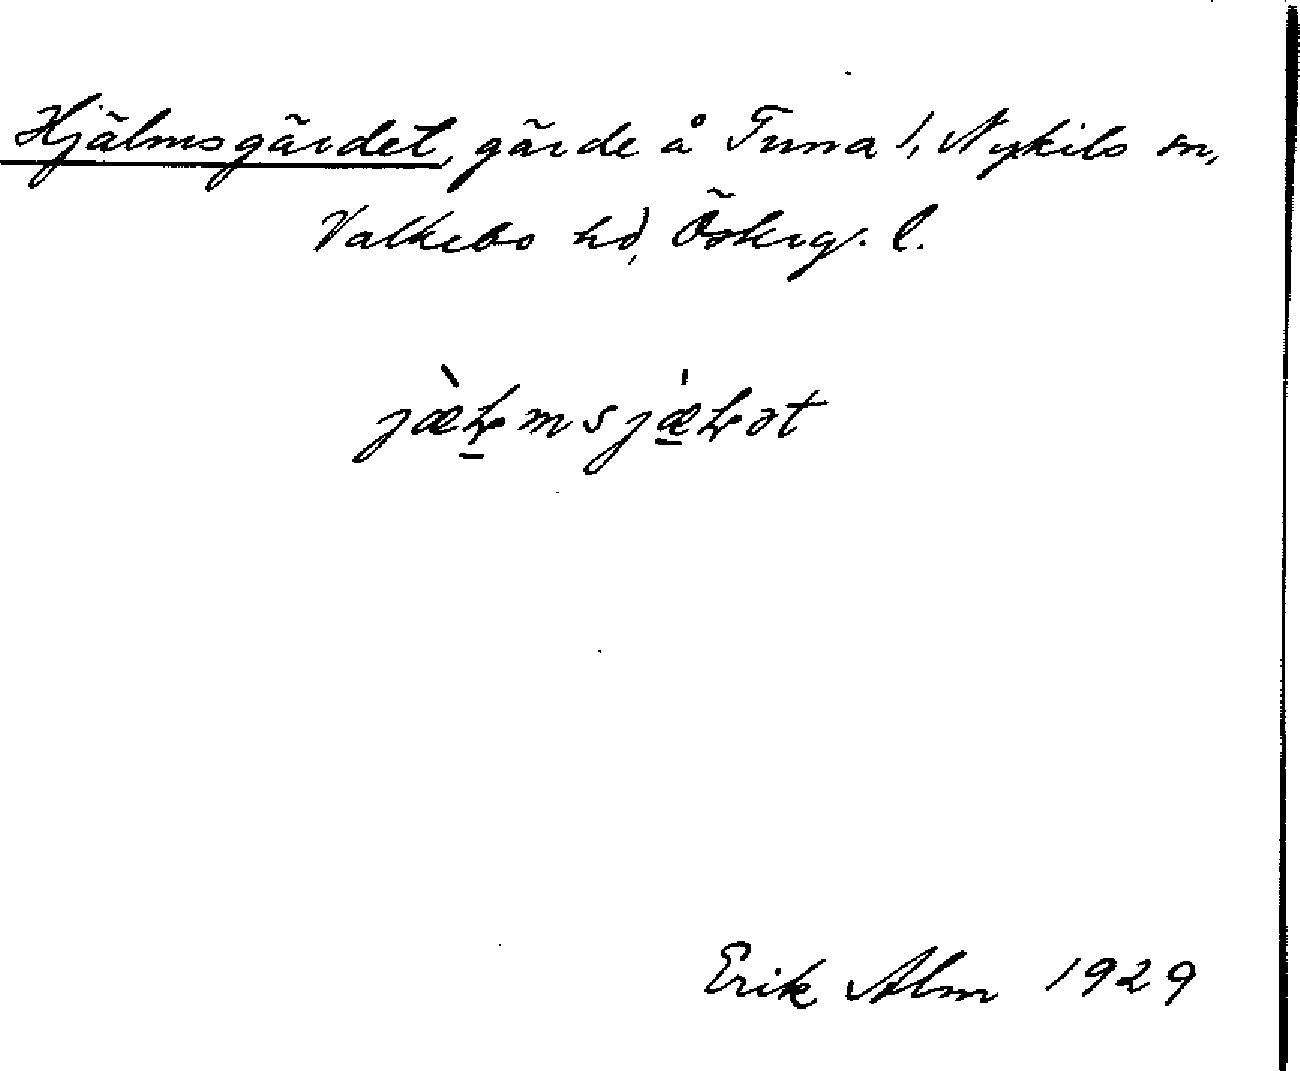 Hjälmsgärdet, gärde å Tuna 1, Nykils sn,
Valkebo hd, Österg. l.
Erik Alm 1929